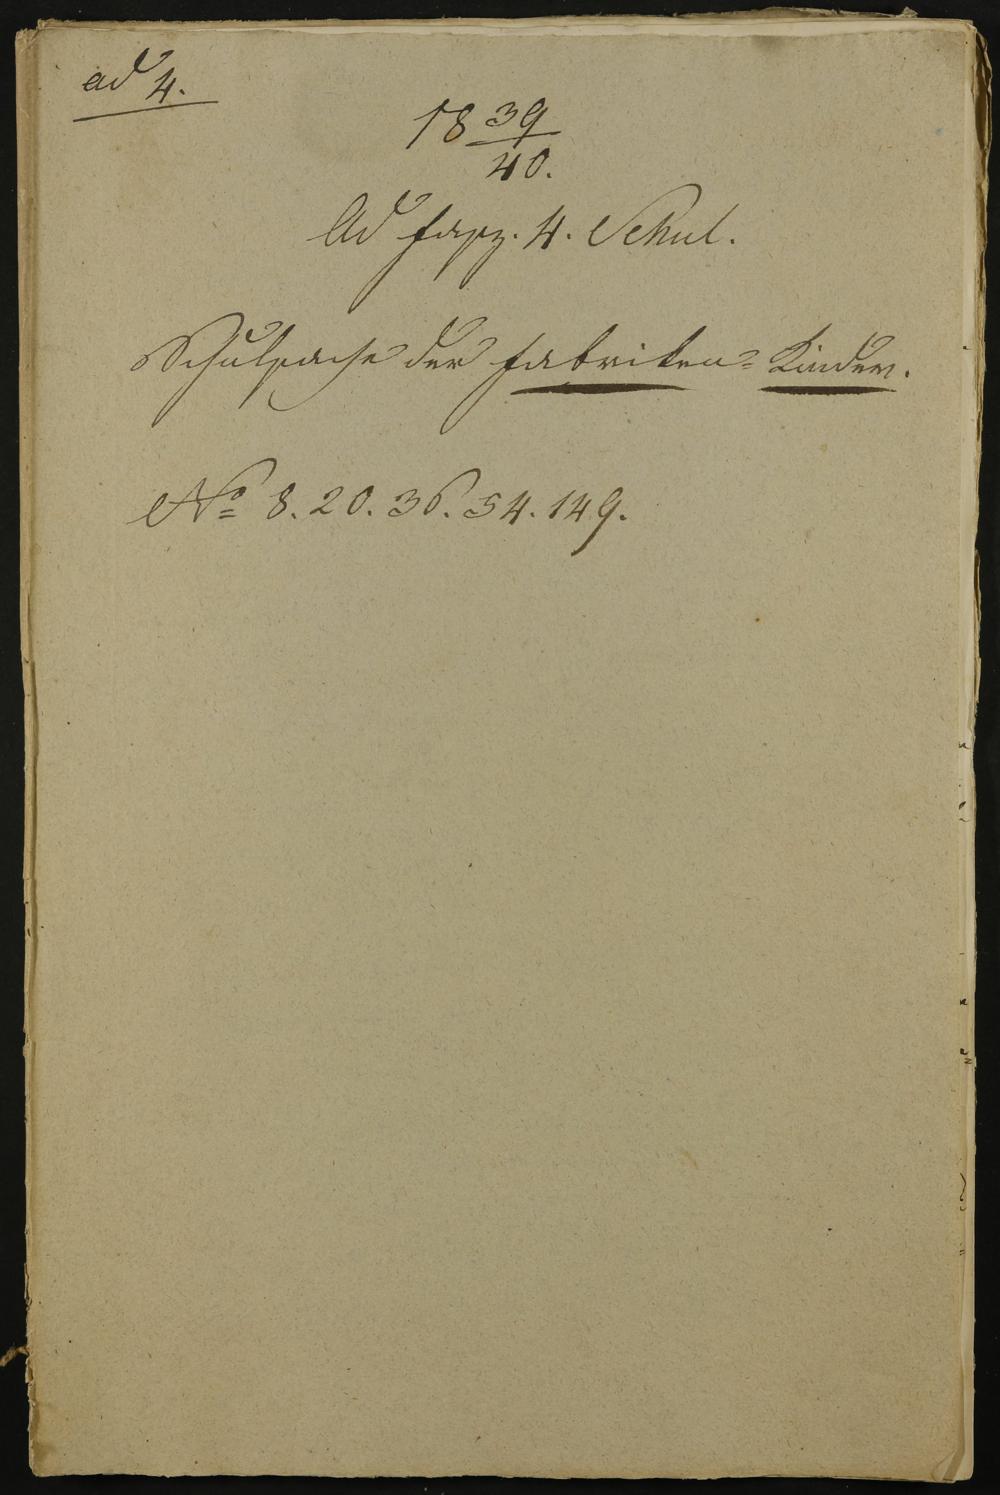 ad 4.
18 39/40.
Ad fasz. 4. Schul.
Schulsache der Fabriken-Kinder.
No 8. 20. 36. 54. 149.